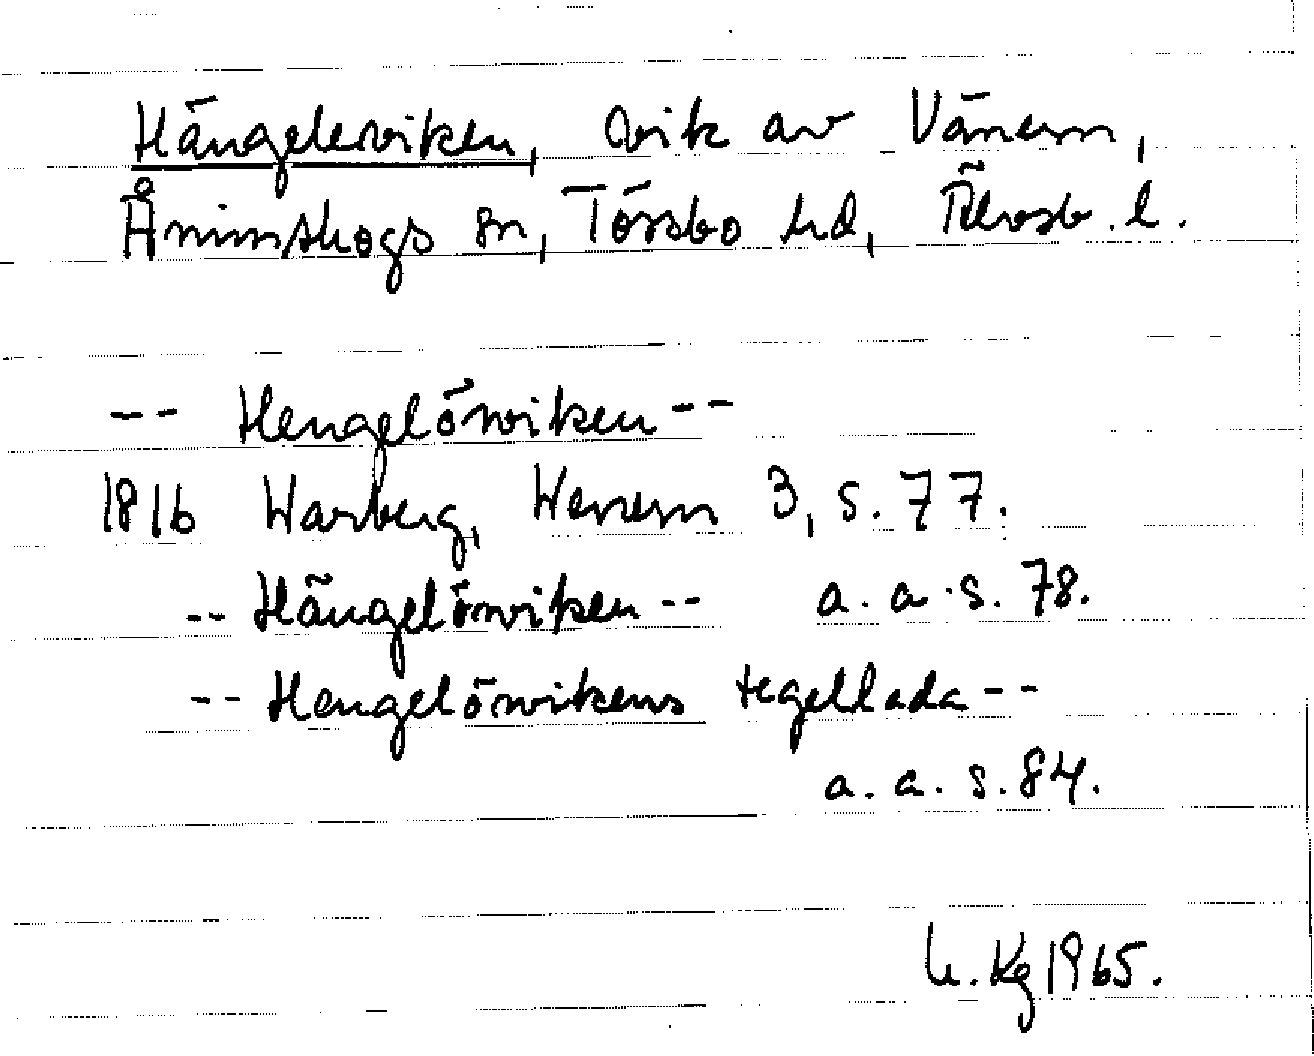 Hängeleviken, vik av Vänern,
Ånimskogs sn, Tössbo hd, Älvsb. l.
-- Hengelörviken --
1816 Warberg, Wenern 3, s. 77.
-- Hängelörviken -- a. a. s. 78.
-- Hengelörvikens tegellada --
a. a. s. 84.
Kg 1965.